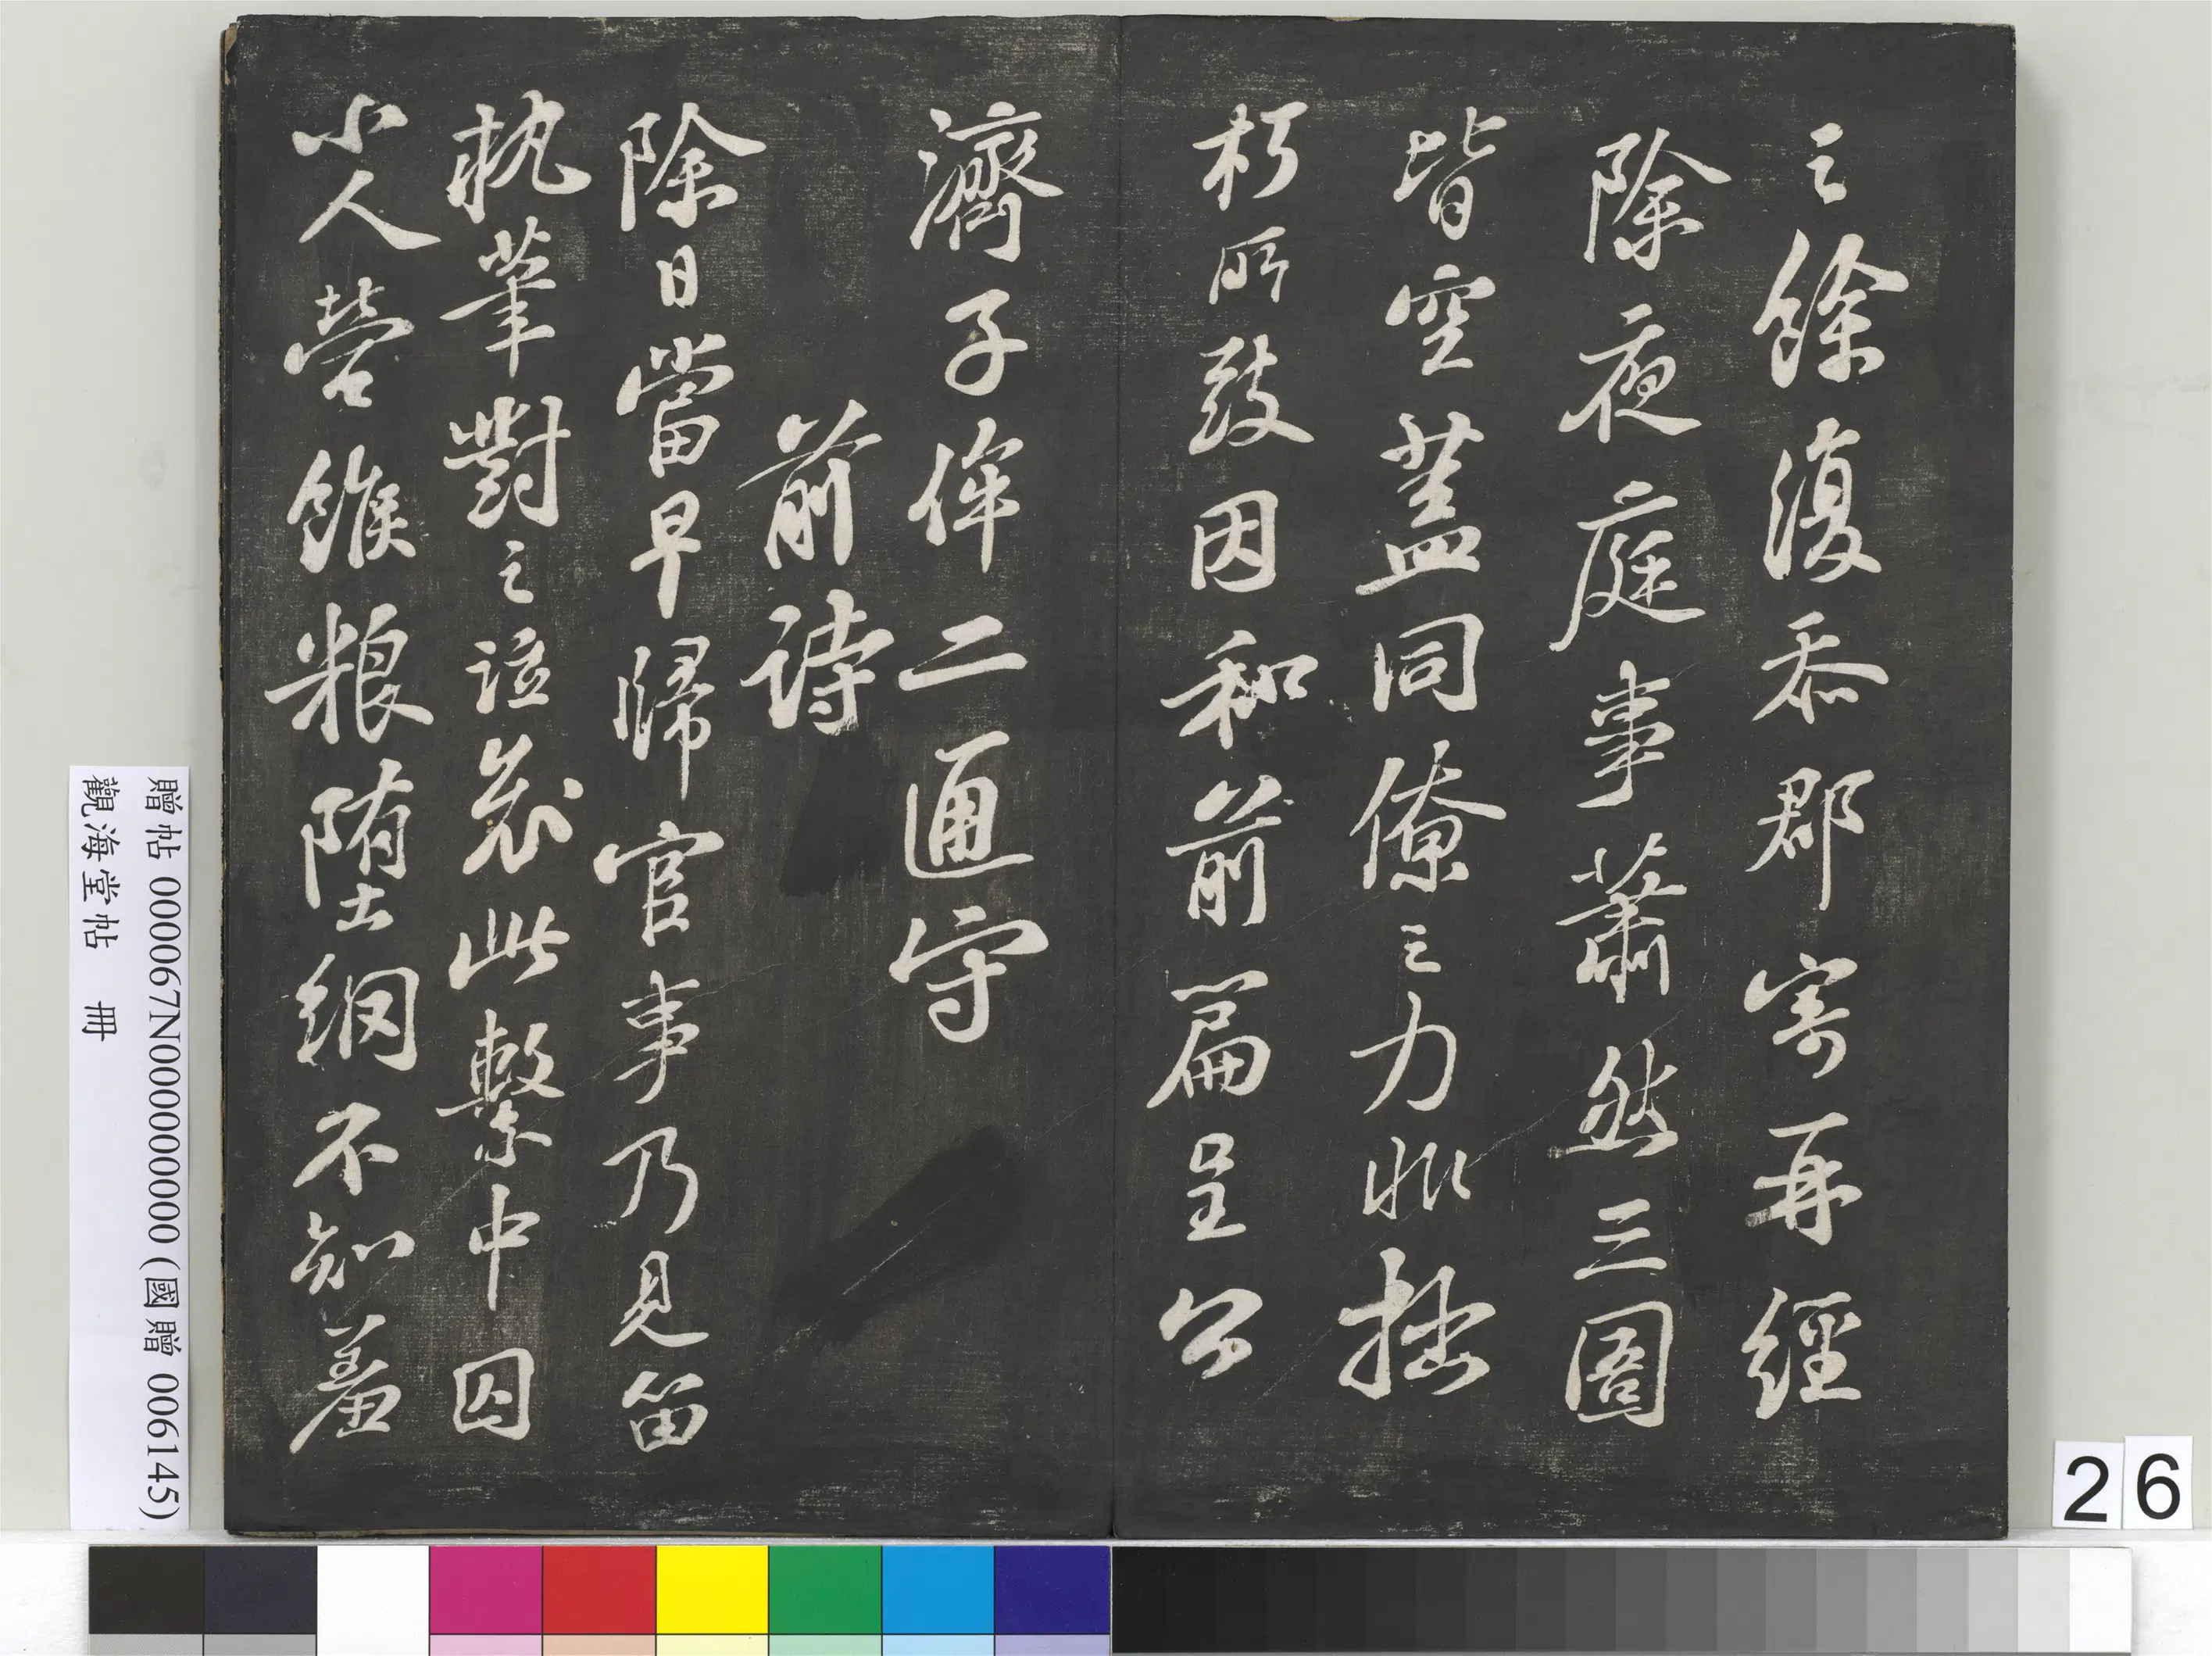 之餘復忝郡寄再經
除夜庭事蕭然三圄
皆空蓋同僚之力非拙
朽所致因和前篇呈公
濟子侔二通守
前詩
除日當早歸官事乃見留
執筆對之泣哀此繫中囚
小人營餱粮堕網不知羞
贈帖 000067N000000000 (國贈 006145)
觀海堂帖 冊
26